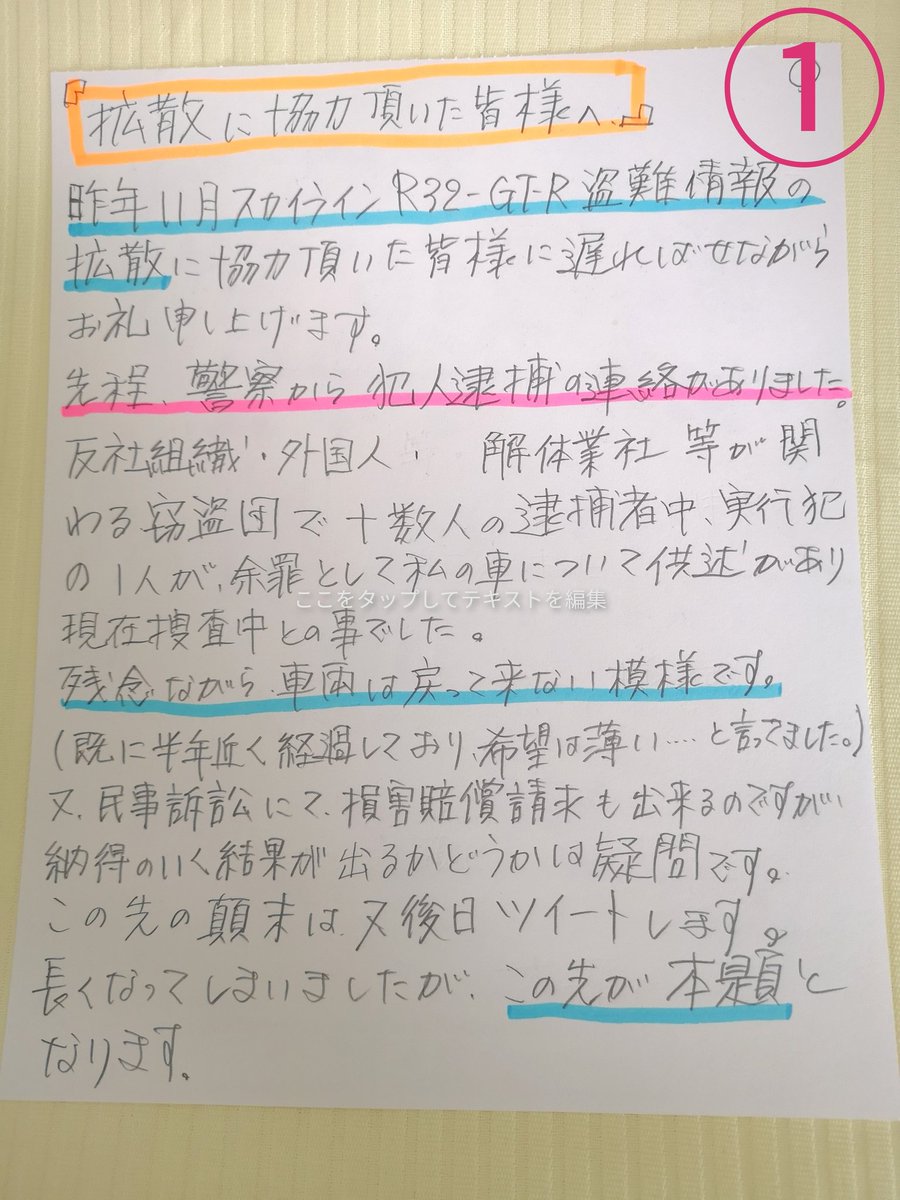 ①
①
『拡散に協力頂いた皆様へ』
昨年11月スカイラインR32-GT-R盗難情報の
拡散に協力頂いた皆様に遅ればせながら
お礼申し上げます。
先程、警察から犯人逮捕の連絡がありました。
反社組織・外国人・ 解体業社 等が関
わる窃盗団で十数人の逮捕者中、実行犯
の1人が、余罪として私の車について供述があり
ここをタップしてテキストを編集
現在捜査中との事でした。
残念ながら、車両は戻って来ない模様です。
(既に半年近く経過しており、希望は薄い….と言ってました。)
又、民事訴訟にて、損害賠償請求も出来るのですが、
納得のいく結果が出るかどうかは疑問です。
この先の顛末は、又後日ツイートします。
長くなってしまいましたが、この先が本題と
なります。